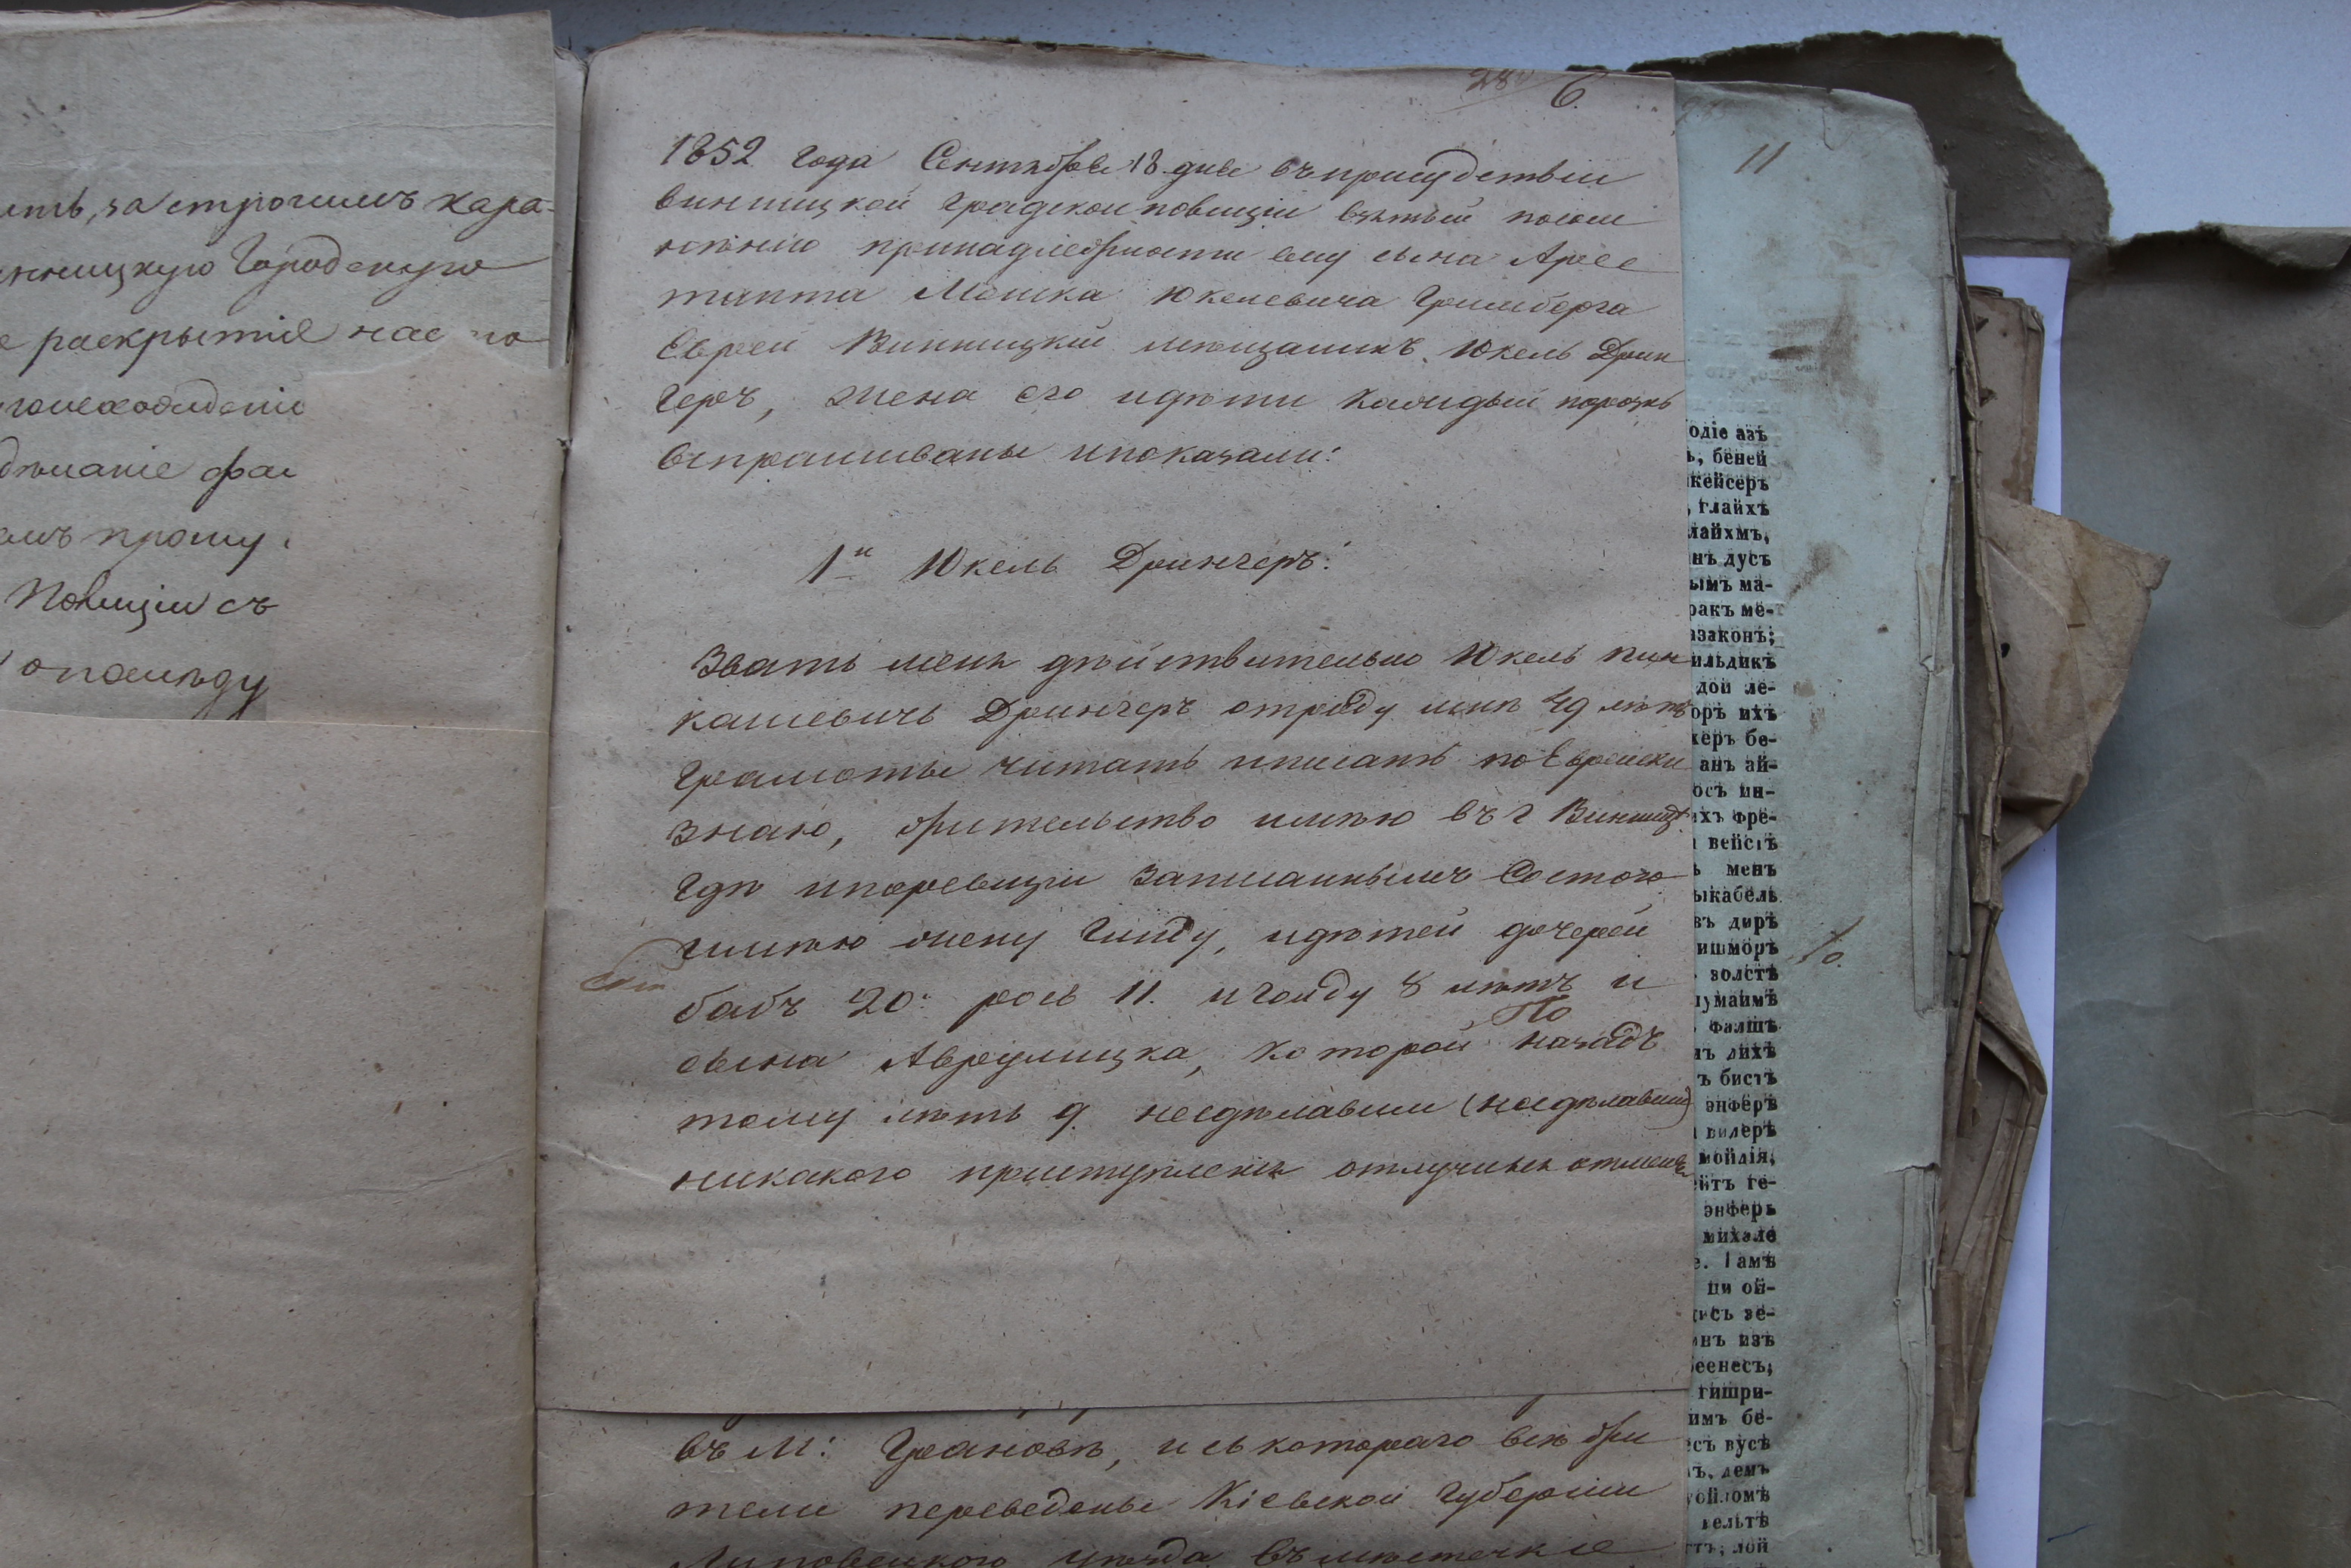 ить, за строгимъ кара-
нницкую Городскую
е раскрытіе насто
прошу
Полиціи съ
280 6.
1852 года Сентября 18 дня въ присудствіи
винницкой градской полиціи взятый
принадлежности ему сына Арес
танта Мошка Юкелевича Гримберга
Еврей Винницкий мѣщанинъ Юкель Дрин
геръ, жена его идѣти каждый порознь
вспрашиваны ипоказали:
1й Юкель Дрингеръ:
Звать меня дѣйствительно Юкель пин
касіевичъ Дрингеръ отроду мнѣ 49 лѣтъ
грамоты читать иписать по Еврейски
знаю, жительство имѣю въ г Винницѣ
гдѣ иподревизіи записаннымъ Состою
имѣю жену Гинду, идѣтей дочерей
бабъ 20. рось 11. игоиду 8 лѣтъ и
сына Аврумицка, которой По назадъ
тому лѣтъ 9. несдѣлавши (несдѣлавши)
никакого приступленія отлучился отменя
въ М: Грановѣ, исъ котораго всѣ жи
тели переведены Кіевской Губерніи
Липовецкого уѣзда въ мѣстечкіе
11
одіе азъ
ъ, беней
кейсеръ
, глайхъ
лайхмъ,
нъ дусъ
ымъ ма-
ракъ ме-
азаконъ;
ильдикъ
дой ле-
оръ ихъ
керъ бе-
анъ ай-
осъ ин-
хъ фре-
вейстъ
ъ менъ
ыкабель
въ диръ
ишморъ
золстъ
думаимъ
фалшъ
нъ лихъ
ъ бистъ
энферъ
вилеръ
мойлія,
ейтъ ге-
энферъ
михале
е. Гамъ
ци ой-
ись зе-
нъ изъ
беенесъ,
гишри-
имъ бе-
есъ вусъ
ъ, лемъ
ойломъ
вельтъ
тъ; лой